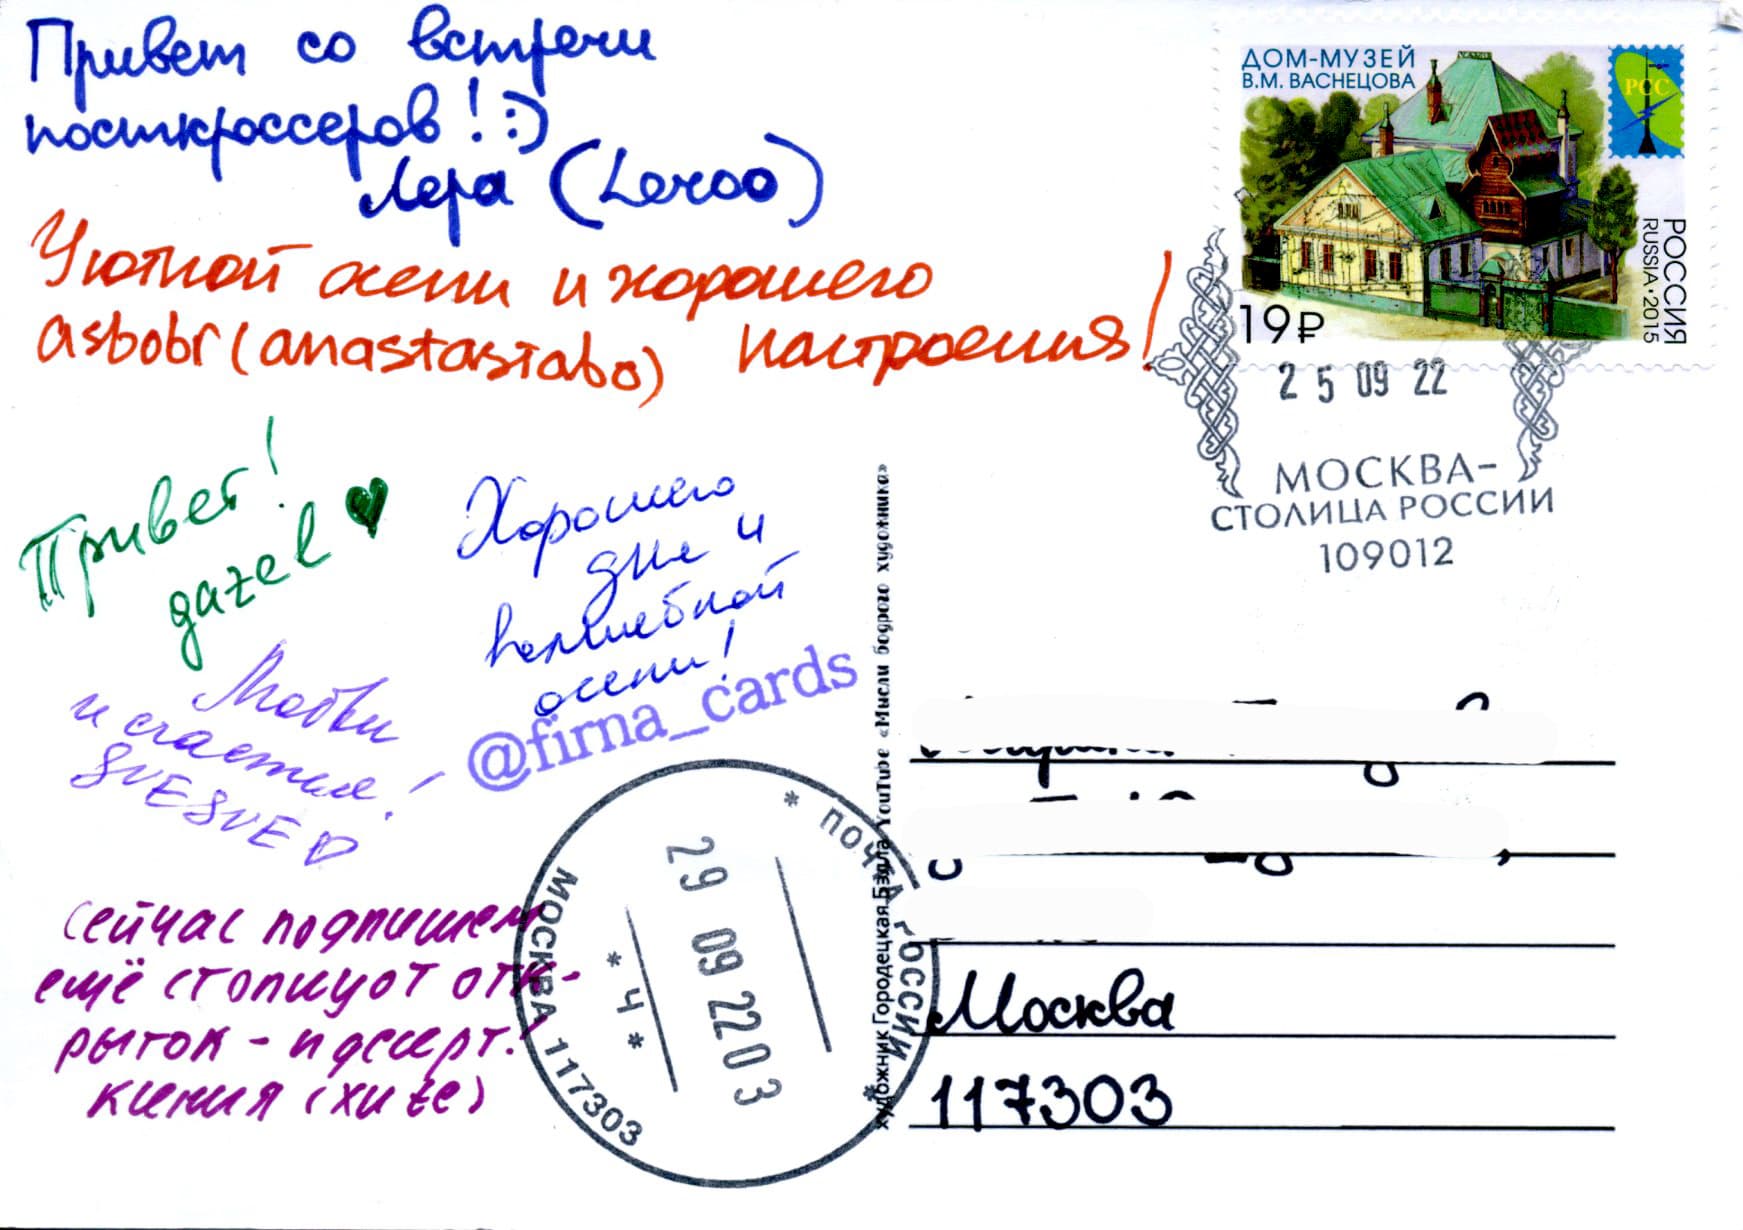 Привет со встречи
посткроссеров! :)
Лера (Leroo)
Уютной осени и хорошего
настроения!
asbobr (anastasiabo)
Привет!
gazel
Хорошего
дня и
волшебной
осени!
@firna_cards
Любви
и счастья!
SVESVE
Сейчас подпишем
ещё стопицот отк-
рыток - и десерт!
Ксения (xuze)
ДОМ-МУЗЕЙ
В.М. ВАСНЕЦОВА
РСС
РОССИЯ
RUSSIA • 2015
19₽
25 09 22
МОСКВА-
СТОЛИЦА РОССИИ
109012
художник Городецкая Бэлла YouTube «Мысли бодрого художника»
* ПОЧТА РОССИИ *
МОСКВА 117303
29 09 22 03
* Ч *
Москва
117303